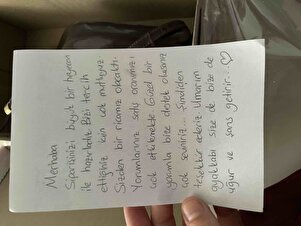 Merhaba
Siparişinizi büyük bir heyecan
ile hazırladık Bizi tercih
ettiğiniz için çok mutluyuz
Sizden bir ricamız olacaktı.
Yorumlarınız satış oranımızı
çok etkilemekte Güzel bir
yorumla bize destek olursanız
çok seviniriz... Şimdiden
teşekkür ederiz Umarım
ayakkabı size de bize de
uğur ve şans getirir...♡